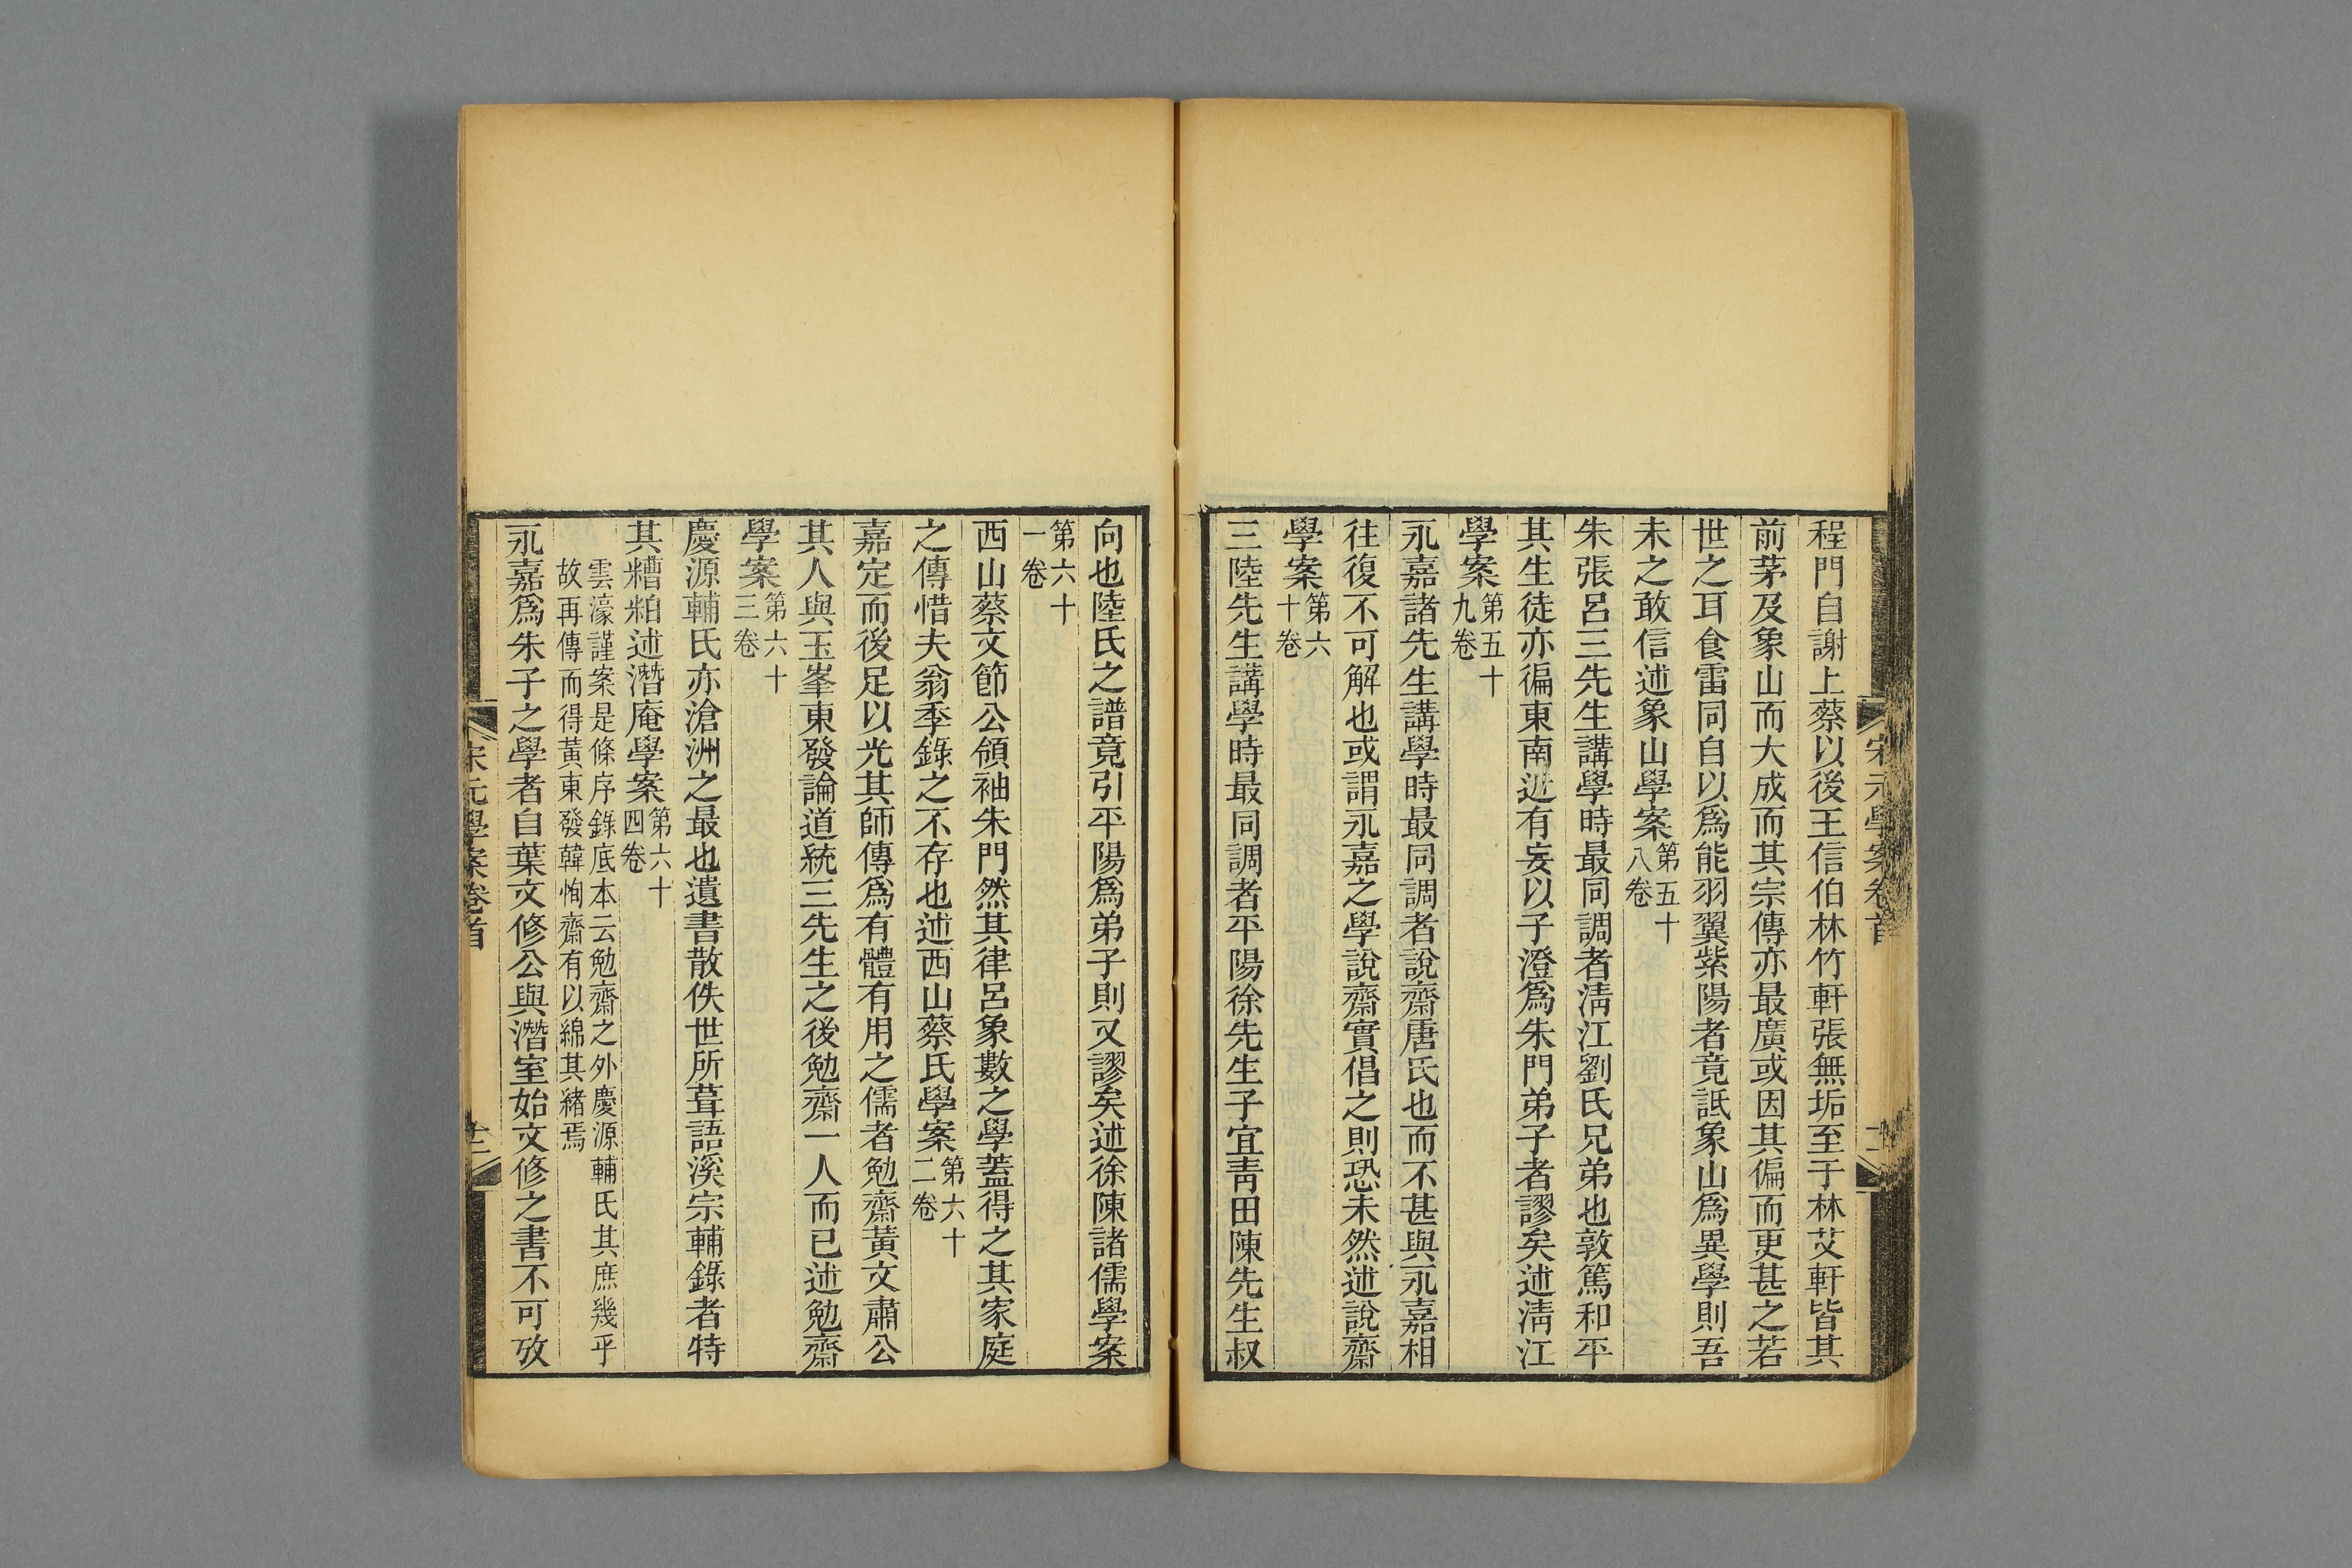 程門自謝上蔡以後王信伯林竹軒張無垢至于林艾軒皆其
前茅及象山而大成而其宗傳亦最廣或因其偏而更甚之若
世之耳食雷同自以爲能羽翼紫陽者竟詆象山爲異學則吾
未之敢信述象山學案第五十八卷
朱張呂三先生講學時最同調者清江劉氏兄弟也敦篤和平
其生徒亦徧東南近有妄以子澄爲朱門弟子者謬矣述清江
學案第五十九卷
永嘉諸先生講學時最同調者說齋唐氏也而不甚與永嘉相
往復不可解也或謂永嘉之學說齋實倡之則恐未然述說齋
學案第六十卷
三陸先生講學時最同調者平陽徐先生子宜青田陳先生叔
宋元學案卷首
向也陸氏之譜竟引平陽爲弟子則又謬矣述徐陳諸儒學案
第六十一卷
西山蔡文節公領袖朱門然其律呂象數之學蓋得之其家庭
之傳惜夫翁季錄之不存也述西山蔡氏學案第六十二卷
嘉定而後足以光其師傳爲有體有用之儒者勉齋黃文肅公
其人與玉峯東發論道統三先生之後勉齋一人而已述勉齋
學案第六十三卷
慶源輔氏亦滄洲之最也遺書散佚世所葺語溪宗輔錄者特
其糟粕述潛庵學案第六十四卷
雲濠謹案是條序錄底本云勉齋之外慶源輔氏其庶幾乎
故再傳而得黃東發韓恂齋有以綿其緒焉
永嘉爲朱子之學者自葉文修公與潛室始文修之書不可攷
宋元學案卷首
十二